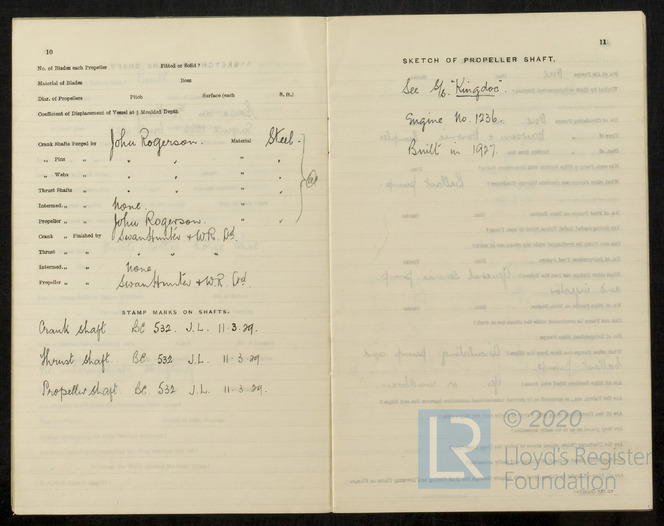 10
No. of Blades each Propeller Fitted or Solid?
Material of Blades Boss
Diar. of Propellers Pitch Surface (each S. ft.)
Coefficient of Displacement of Vessel at ¾ Moulded Depth
Crank Shafts Forged by John Rogerson. Material Steel.
„ Pins „ „ „ „ „
„ Webs „ „ „ „ „
Thrust Shafts „ „ „ „ „
Intermed. „ „ None. „
Propeller „ „ John Rogerson. „ „
Crank „ Finished by Swan Hunter & W.R. Ltd.
Thrust „ „ „ „ „
Intermed. „ „ None
Propeller „ „ Swan Hunter & W.R. Ltd.
STAMP MARKS ON SHAFTS.
Crank shaft BC 532 J.L. 11-3-29.
Thrust shaft BC 532 J.L. 11-3-29.
Propeller shaft BC 532 J.L. 11-3-29.
11
SKETCH OF PROPELLER SHAFT.
See S/S. "Kingdoc"
Engine No. 1236.
Built in 1927.
© 2020
LR
Lloyd's Register
Foundation